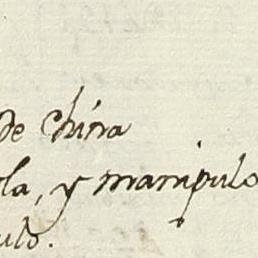 de China
la, y manipulo
ulo.